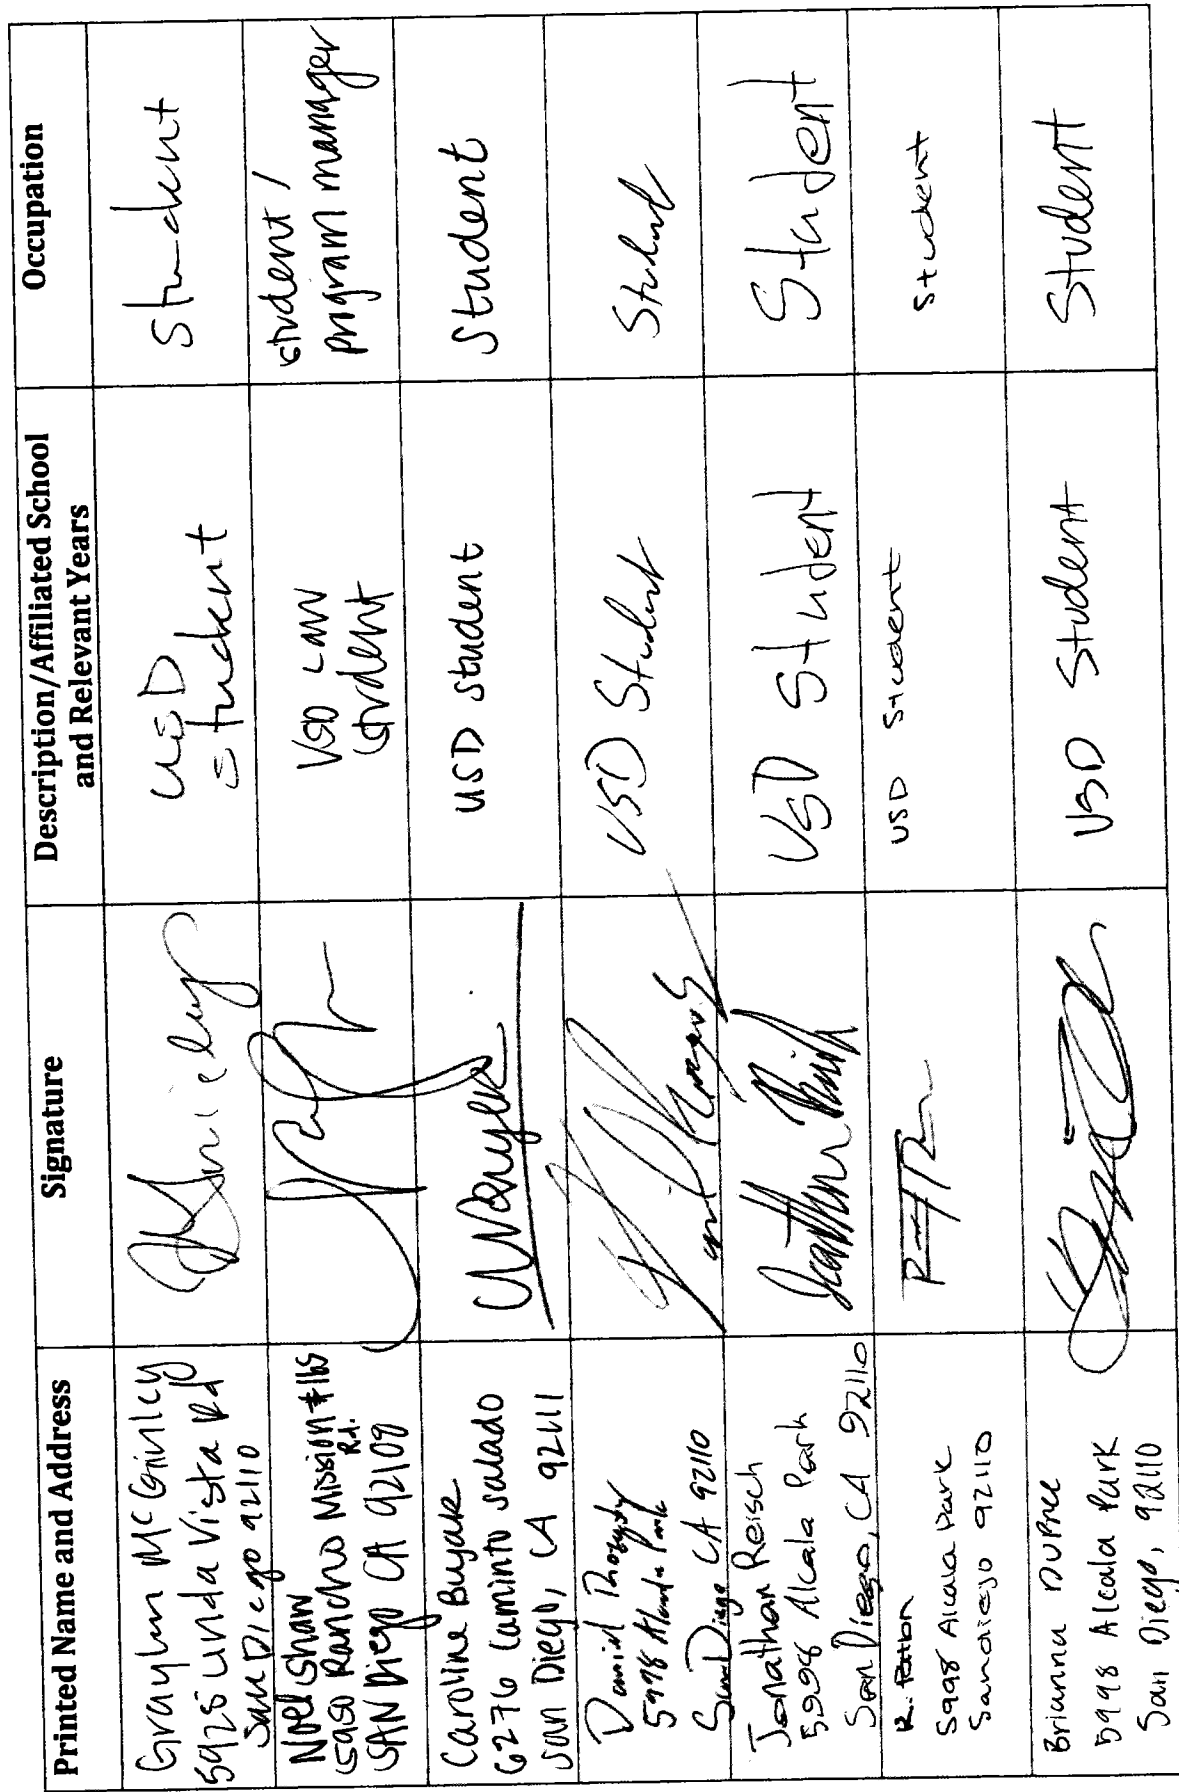 Printed Name and Address
Signature
Description/Affiliated School
and Relevant Years
Occupation
Graylin McGinley
5925 Linda Vista Rd
San Diego 92110
USD
student
student
Noel Shaw
Rancho Mission
Rd.
SAN Diego CA 92109
USD LAW
student
student /
program manager
Caroline Buyak
6276 Caminto Salado
San Diego, CA 92111
USD student
Student
Daniel
5998 Alcala Park
San Diego CA 92110
USD Student
Student
Jonathan Reisch
5998 Alcala Park
San Diego, CA 92110
USD Student
Student
R. Patton
5998 Alcala Park
San diego 92110
USD Student
Student
Brianna DuPree
5998 Alcala Park
San Diego, 92110
USD Student
Student